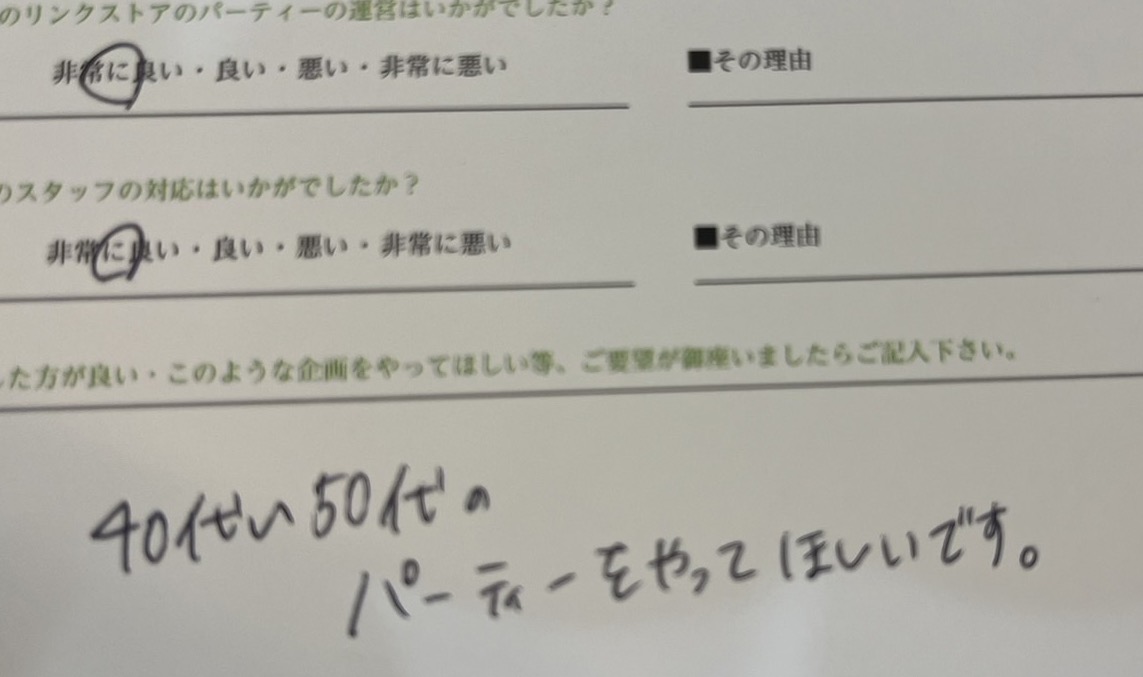 のリンクストアのパーティーの運営はいかがでしたか？
非常に良い・良い・悪い・非常に悪い
■その理由
のスタッフの対応はいかがでしたか？
非常に良い・良い・悪い・非常に悪い
■その理由
した方が良い・このような企画をやってほしい等、ご要望が御座いましたらご記入下さい。
40代い50代の
パーティーをやってほしいです。